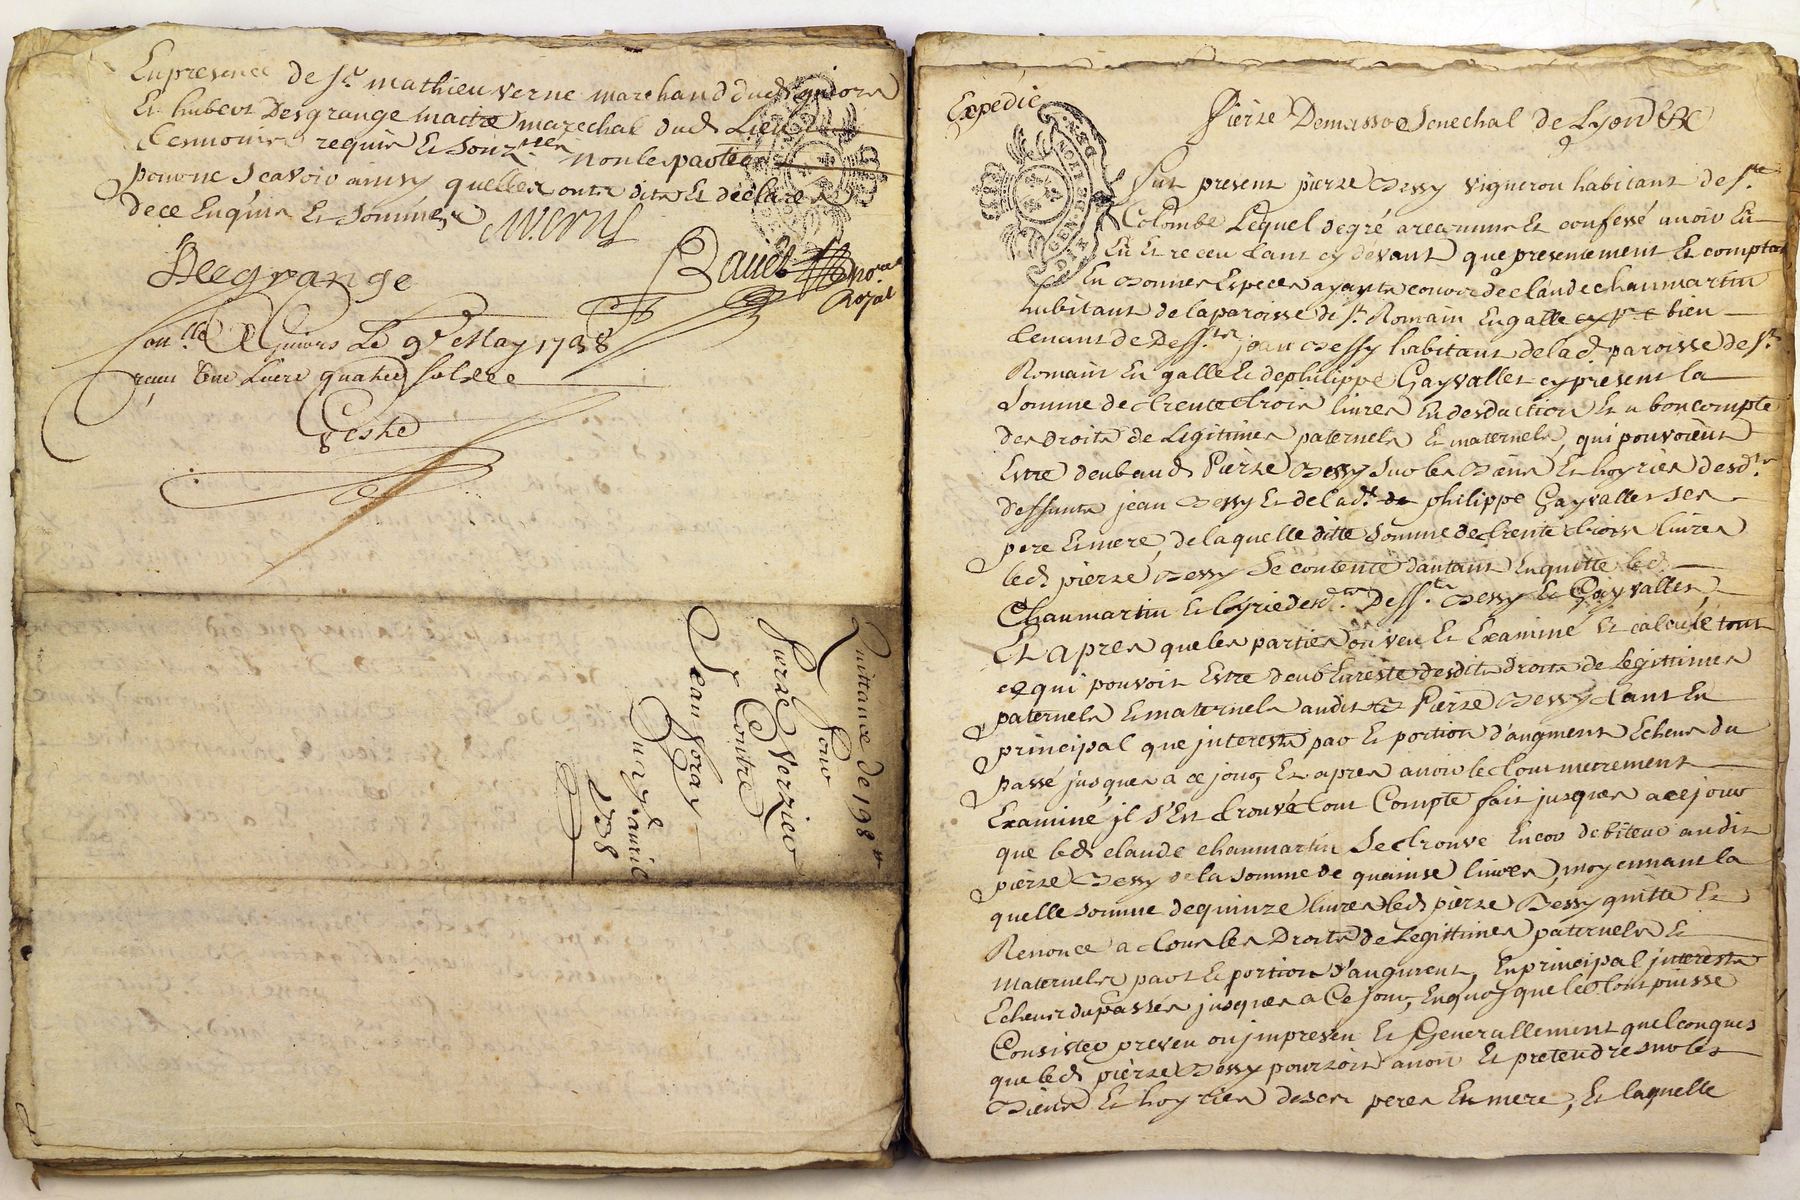 En presence de Sr. mathieu verne marchand dud givors
Et hubert Desgrange maitre marechal dud Lieu
temoins requis Et sousz.nes non les parties
pour ne scavoir ainsy quelles ont dit Et declaré
de ce Enquis Et sommés M. verne
Desgrange
Bauet
no.re
Royal
Con.llé A Givors Le 9e May 1738
reçu Une Livre quatre sols
Geste
Quittance de 198 #
pour
Pierre Verzieu
Contre
Jean foray
Du 27e avril
1738
Expedié
GEN. DE LION. DEN.
DIX
Pierre Demasso Senechal de Lyon &c
Fut present pierre Dessy vigneron habitant de Ste.
Colombe Lequel de gré a reconnu Et confessé avoir Eu
Et receu tant cy devant que presentement Et comptant
En bonnes Especes ayants cours de claude chaumartin
habitant de la paroisse de St. Romain En galle bien
tenant de deff.t jean Dessy habitant de la d. paroisse de St.
Romain En galle Et de philippe Gayvallet cy present la
somme de trente trois livres En desduction Et a bon compte
des droits de Legitimes paternels Et maternels, qui pouvoient
Estre deub aud. Pierre Dessy sur les biens Et hoyries desd.ts
deffunts jean Dessy Et de la d.te philippe Gayvallet ses
pere Et mere, de laquelle ditte somme de trente trois livres
led. pierre Dessy se contente d'autant En quitte led.
Chaumartin Et hoyrie desd.ts Deff.ts Dessy Et Gayvallet,
Et apres que les parties on veu Et Examiné Et calculé tout
ce qui pouvoit Estre deub En reste desdits droits de Legittimes
paternels Et maternels audit Pierre Dessy tant En
principal que jnterests par Et portion d'augment Echeus du
passé jusques a ce jour, Et apres avoir le tout meurement
Examiné jl s'Est trouvé tout Compte fait jusques a ce jour
que led. claude chaumartin se trouve Encor debiteur audit
pierre Dessy de la somme de quainse livres, moyennant la
quelle somme de quinze livres led. pierre Dessy quitte Et
Renonce a tous les Droits de Legittimes paternels Et
Maternels part Et portion d'augment, En principal jnterests
Echeus du passés jusques a Ce jour, En quoy que le tout puisse
Consister preveu ou jmpreveu Et Generallement quelconques
que led. pierre Dessy pourroit avoir Et pretendre sur les
biens Et hoyries de ses peres Et mere, Et laquelle